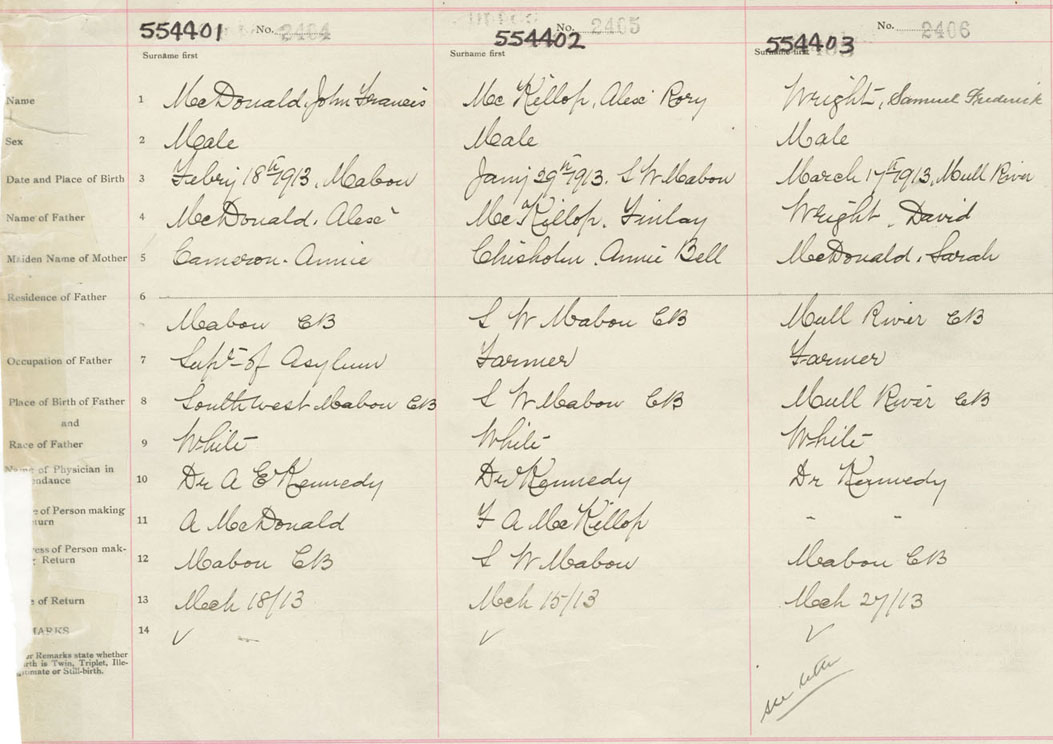 554401 No. 2404 554402 No. 2405 554403 No. 2406
Surname first Surname first Surname first
Name 1 McDonald, John Francis Mc Killop, Alexr Rory Wright, Samuel Frederick
Sex 2 Male Male Male
Date and Place of Birth 3 Febry 18th 1913, Mabou Jany 29th 1913. S W Mabou March 17th 1913, Mull River
Name of Father 4 McDonald, Alexr Mc Killop, Finlay Wright, David
Maiden Name of Mother 5 Cameron - Annie Chisholm, Annie Bell McDonald, Sarah
Residence of Father 6
Mabou CB S W Mabou CB Mull River CB
Occupation of Father 7 Supt of Asylum Farmer Farmer
Place of Birth of Father 8 Southwest Mabou CB S W Mabou CB Mull River CB
and
Race of Father 9 White White White
Name of Physician in
ndance 10 Dr A E Kennedy Dr Kennedy Dr Kennedy
e of Person making
turn 11 A McDonald F A McKillop " "
ress of Person mak-
g Return 12 Mabou CB S W Mabou Mabou CB
e of Return 13 Mch 18/13 Mch 15/13 Mch 27/13
MARKS 14 ✓ — ✓ ✓
er Remarks state whether
rth is Twin, Triplet, Ille-
gitimate or Still-birth.
see letter